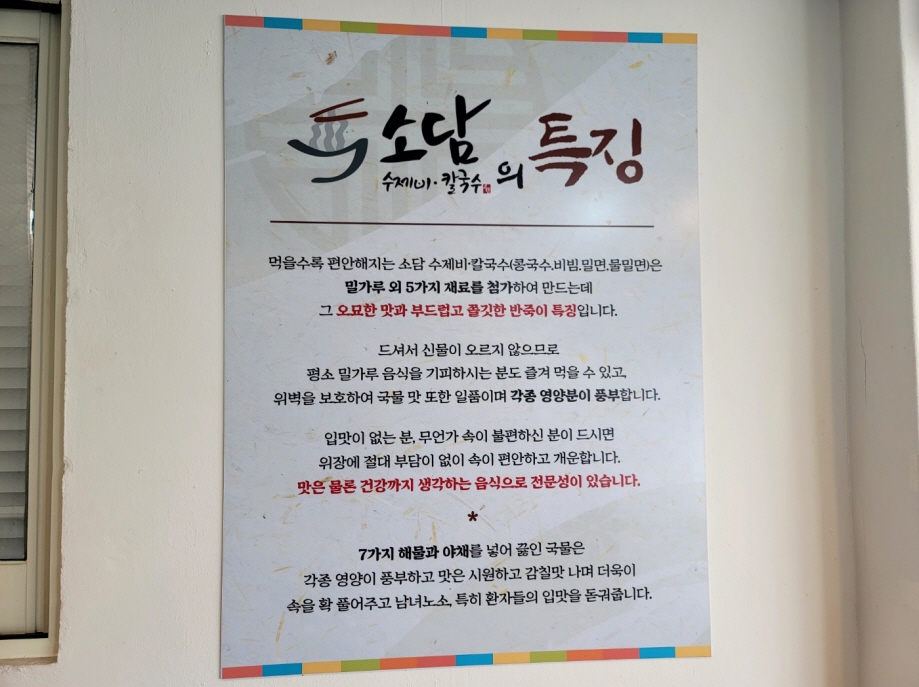 소담의 특징
수제비·칼국수
먹을수록 편안해지는 소담 수제비·칼국수(콩국수,비빔,밀면,물밀면)은
밀가루 외 5가지 재료를 첨가하여 만드는데
그 오묘한 맛과 부드럽고 쫄깃한 반죽이 특징입니다.
드셔서 신물이 오르지 않으므로
평소 밀가루 음식을 기피하시는 분도 즐겨 먹을 수 있고,
위벽을 보호하여 국물 맛 또한 일품이며 각종 영양분이 풍부합니다.
입맛이 없는 분, 무언가 속이 불편하신 분이 드시면
위장에 절대 부담이 없이 속이 편안하고 개운합니다.
맛은 물론 건강까지 생각하는 음식으로 전문성이 있습니다.
*
7가지 해물과 야채를 넣어 끓인 국물은
각종 영양이 풍부하고 맛은 시원하고 감칠맛 나며 더욱이
속을 확 풀어주고 남녀노소, 특히 환자들의 입맛을 돋궈줍니다.